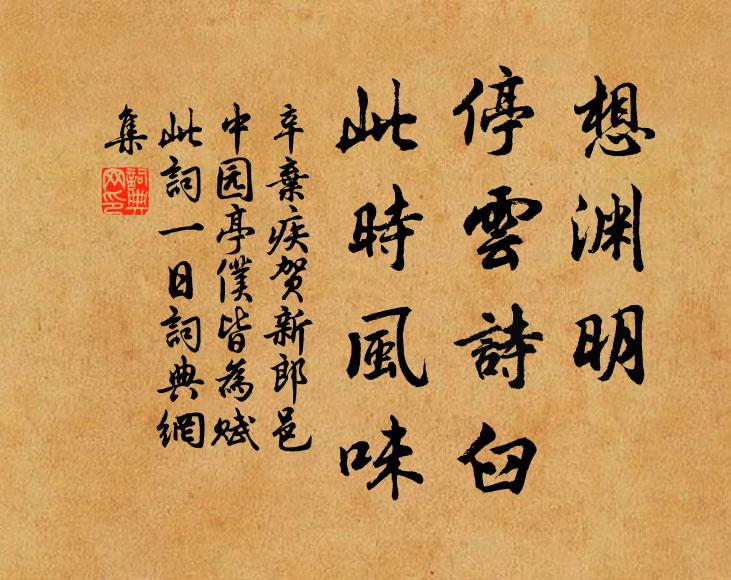 想渊明
停雲詩臼
此時風味
辛棄疾贺新郎邑
中园亭僕皆為赋
此詞一日詞典網
集
詞典
网印